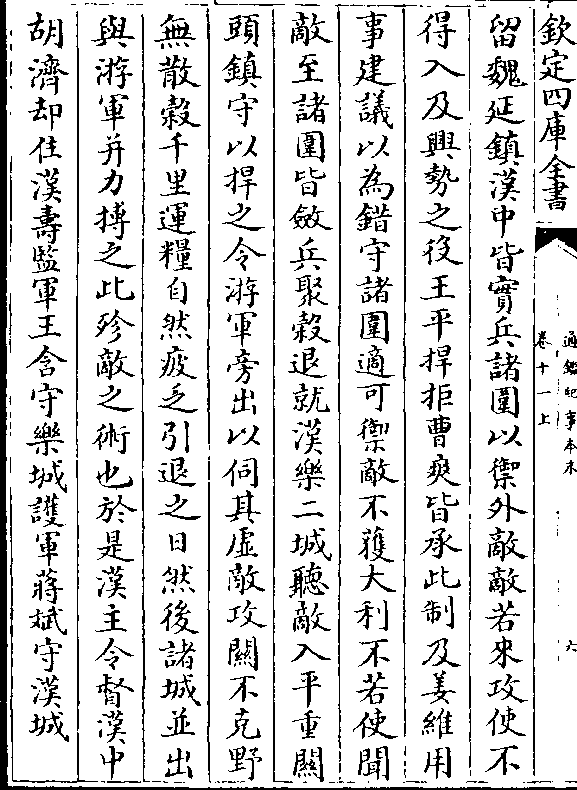 欽定四庫全書
通鑑紀事本末
卷十一上
六
留魏延鎮漢中皆實兵諸圍以禦外敵敵若來攻使不
得入及興勢之役王平捍拒曹爽皆承此制及姜維用
事建議以為錯守諸圍適可禦敵不獲大利不若使聞
敵至諸圍皆斂兵聚穀退就漢樂二城聽敵入平重關
頭鎮守以捍之令游軍旁出以伺其虛敵攻關不克野
無散穀千里運糧自然疲乏引退之日然後諸城並出
與游軍并力搏之此殄敵之術也於是漢主令督漢中
胡濟却住漢壽監軍王含守樂城護軍蔣斌守漢城